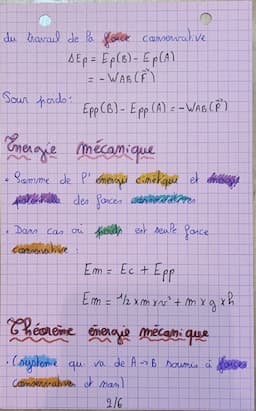 du travail de la force conservative
ΔEp = Ep(B) - Ep(A)
= - WAB(F⃗)
Sous poids :
Epp(B) - Epp(A) = -WAB(P⃗)
Énergie mécanique
• Somme de l'énergie cinétique et énergie
potentielle des forces conservatives
• Dans cas où poids est seule force
conservative :
Em = Ec + Epp
Em = 1/2 x m x v² + m x g x h
Théorème énergie mécanique
• (système qui va de A→B soumis à forces
conservatives et non)
2/6